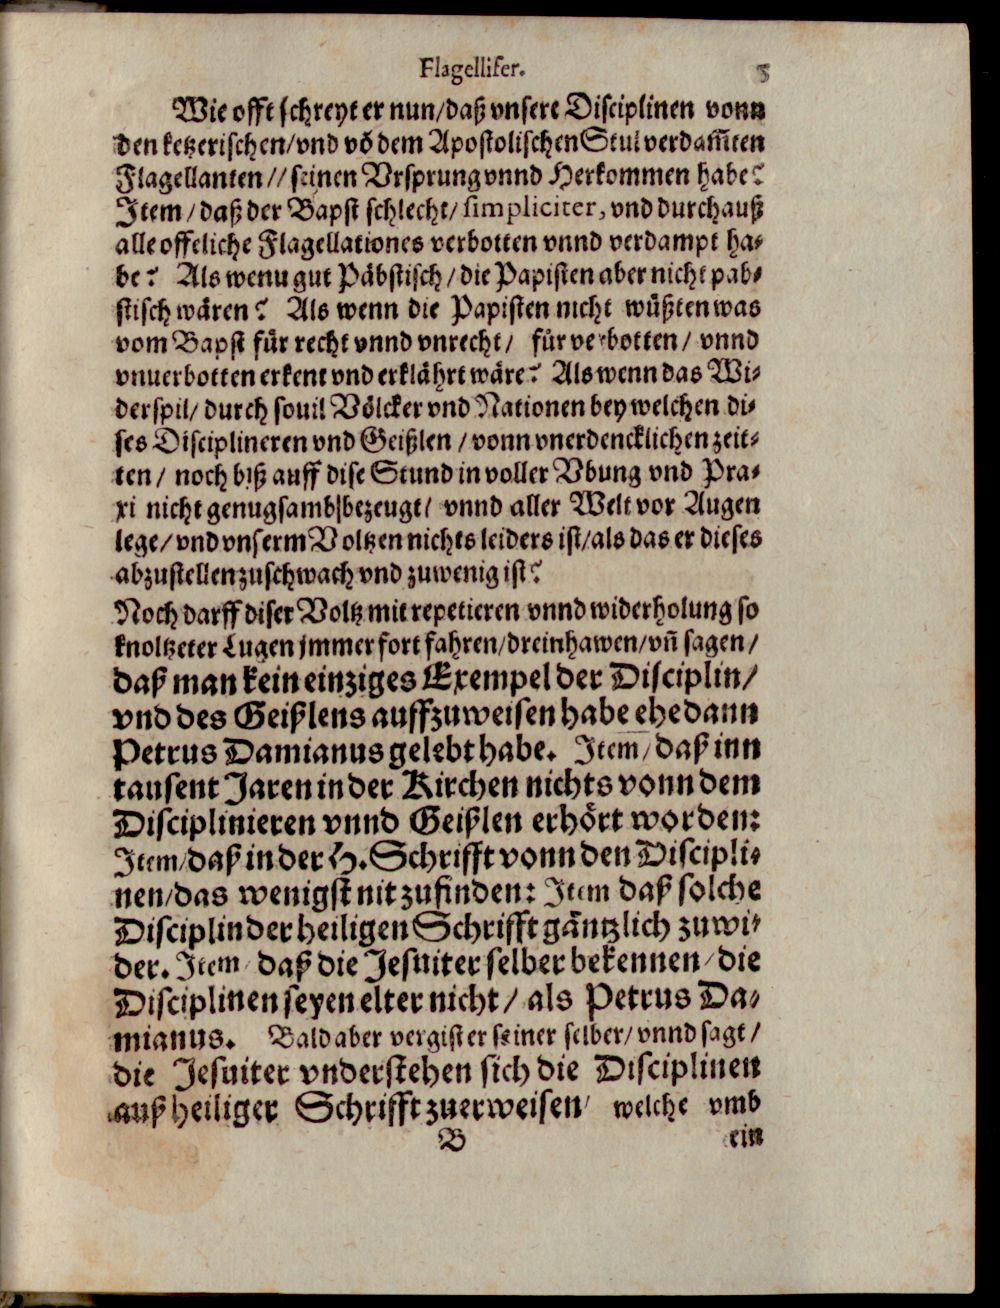 Flagellifer. 5
Wie offt schreyt er nun/daß vnsere Disciplinen vonn
den ketzerischen/vnd võ dem Apostolischen Stul verdam̃ten
Flagellanten// seinen Vrsprung vnnd Herkommen habe?
Item/daß der Bapst schlecht/ simpliciter, vnd durchauß
alle offeliche Flagellationes verbotten vnnd verdampt ha⸗
be? Als wenu gut Päbstisch/die Papisten aber nicht päb⸗
stisch wären? Als wenn die Papisten nicht wüßten was
vom Bapst für recht vnnd vnrecht/ für verbotten/ vnnd
vnuerbotten erkent vnd erklährt wäre? Als wenn das Wi⸗
derspil/ durch souil Völcker vnd Nationen bey welchen di⸗
ses Disciplineren vnd Geißlen/vonn vnerdencklichen zeit⸗
ten/ noch biß auff dise Stund in voller Vbung vnd Pra⸗
xi nicht genugsamb bezeugt/ vnnd aller Welt vor Augen
lege/vnd vnserm Voltzen nichts leiders ist/als das er dieses
abzustellen zu schwach vnd zuwenig ist?
Noch darff diser Voltz mit repetieren vnnd widerholung so
knoltzeter Lugen jmmer fort fahren/dreinhawen/vñ sagen/
daß man kein einziges Exempel der Disciplin/
vnd des Geißlens auffzuweisen habe ehe dann
Petrus Damianus gelebt habe. Item/daß inn
tausent Jaren in der Kirchen nichts vonn dem
Disciplinieren vnnd Geißlen erhört worden:
Item/daß in der H. Schrifft vonn den Discipli⸗
nen/das wenigst nit zufinden: Item daß solche
Disciplin der heiligen Schrifft gäntzlich zuwi⸗
der. Item/daß die Jesuiter selber bekennen/die
Disciplinen seyen elter nicht/ als Petrus Da⸗
mianus. Bald aber vergist er seiner selber/vnnd sagt/
die Jesuiter vnderstehen sich die Disciplinen
auß heiliger Schrifft zuerweisen/ welche vmb
B ein